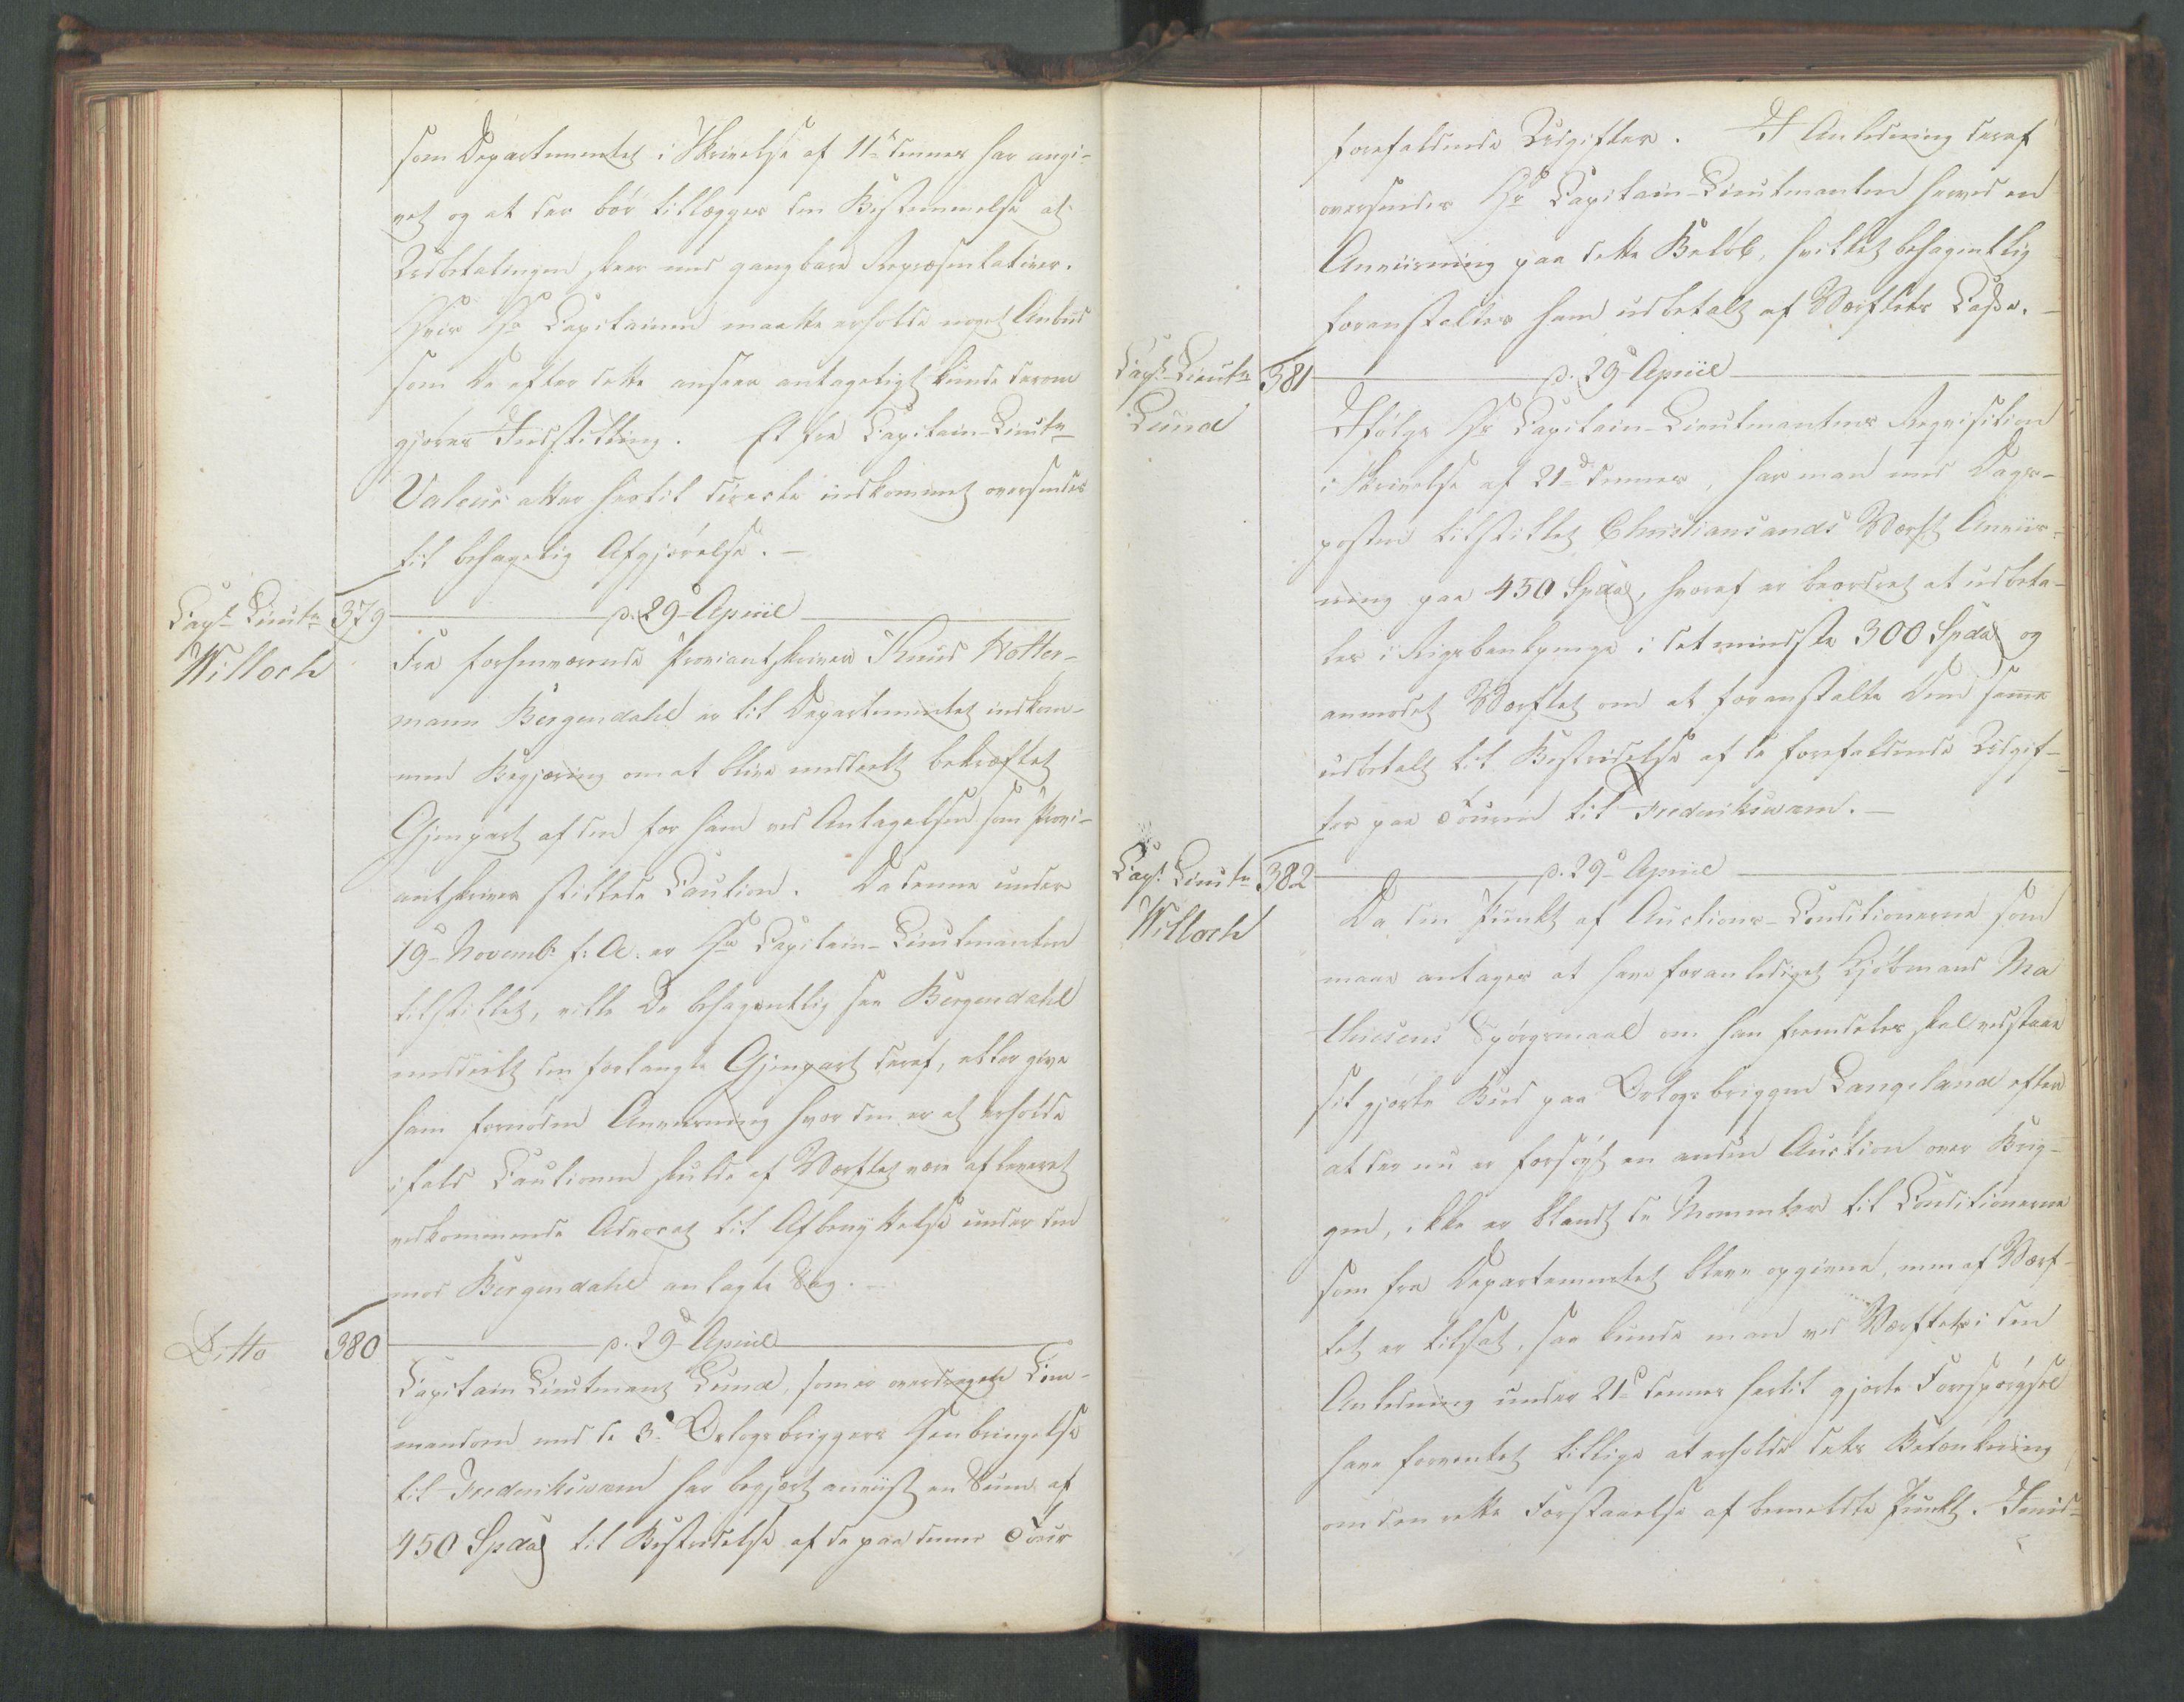 som Departementet i Skrivelse af 11te dennes har angi-
vet og at der bör tillægges den Bestemmelse at
Udbetalingen skeer med gangbare Repræsentativer.
Hvis Hr Capitainen maatte erholde noget Anbud
som De efter dette anseer antageligt kunde derom
gjøres Indstilling. Et fra Capitain-Lieutn
Valeur atter hertil directe indkommet oversendes
til behagelig Afgjørelse. —
Capt Lieutn 379 d. 29 Apriil
Willoch
Fra forhenværende Proviantskriver Knud Wolter-
mann Bergendahl er til Departementet indkom-
men Begjæring om at blive meddeelt bekræftet
Gjenpart af den for ham ved Antagelsen som Provi-
antskriver stillede Caution. Da denne under
19d Novembr f: A. er Hr Capitain-Lieutenanten
tilstillet, ville De behagentlig see Bergendahl
meddeelt den forlangte Gjenpart deraf, eller give
ham fornöden Anviisning hvor den er at erholde
ifald Cautionen skulde af Værftet være afleveret
vedkommende Advocat til Afbenyttelse under den
mod Bergendahl anlagte Sag. —
Ditto 380 d. 29d Apriil
Capitain Lieutenant Lund, som er overdragen Com-
mandoen med de 3de Orlogsbriggers Henbringelse
til Frederiksværn har begjært anviist en Sum af
450 Spd til Bestridelse af de paa denne Tour
forefaldende Udgifter. I Anledning deraf
oversendes Hr Capitain-Lieutenanten herved en
Anviisning paa dette Belöb, hvilket behagentlig
foranstaltes ham udbetalt af Værftets Casse. —
Capt Lieutn 381 d. 29d Apriil
Lund
Ifölge Hr Capitain-Lieutenantens Reqvisition
i Skrivelse af 21d dennes, har man med Dags-
posten tilstillet Christiansands Værft Anviis-
ning paa 450 Spd, hvoraf er beordret at udbeta-
les i Rigsbankpenge i det mindste 300 Spd og
anmodet Værftet om at foranstalte Dem samme
udbetalt til Bestridelse af de forefaldende Udgif-
ter paa Touren til Frederiksværn. —
Capt Lieutn 382 d. 29d Apriil
Willoch
Da den Punkt af Auctions-Conditionerne som
maae antages at have foranlediget Kjöbmand Ma
thiesens Spörgsmaal om han fremdeles skal vedstaae
sit gjorte Bud paa Orlogsbriggen Langeland efter
at der nu er forsögt en anden Auction over Brig-
gen, ikke er blandt de Momenter til Conditionerne
som fra Departementet bleve opgivne, men af Værf-
tet er tilsat, saa kunde man ved Værftets i den
Anledning under 21d dennes hertil gjorte Forespörgsel
have forventet tillige at erholde dets Betænkning
om den rette Forstaaelse af bemeldte Punkt. Imid-